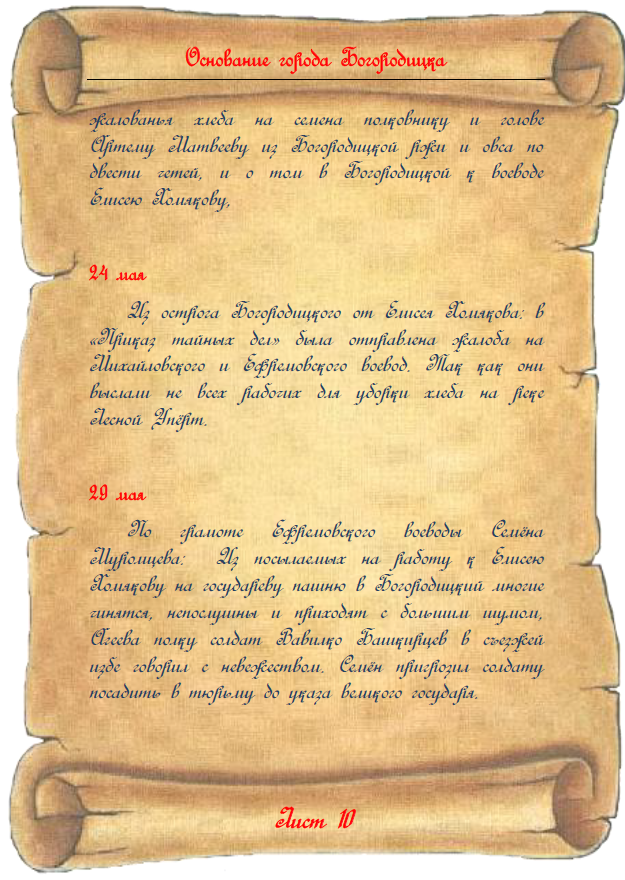 Основание города Богородицка
жалованья хлеба на семена полковнику и голове
Артему Матвееву из Богородицкой ржи и овса по
двести четей, и о том в Богородицкой к воеводе
Елисею Хомякову,
24 мая
Из острога Богородицкого от Елисея Хомякова: в
«Приказ тайных дел» была отправлена жалоба на
Михайловского и Ефремовского воевод. Так как они
выслали не всех рабочих для уборки хлеба на реке
Лесной Упёрт.
29 мая
По грамоте Ефремовского воеводы Семёна
Муромцева: Из посылаемых на работу к Елисею
Хомякову на государеву пашню в Богородицкий многие
чинятся, непослушны и приходят с большим шумом,
Агеева полку солдат Вавилко Башкирцев в съезжей
избе говорил с невежеством. Семён пригрозил солдату
посадить в тюрьму до указа великого государя.
Лист 10